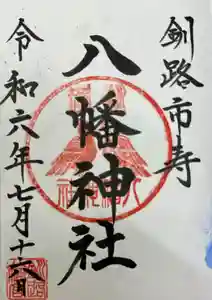 釧路市寿
八幡神社
令和六年七月十六日